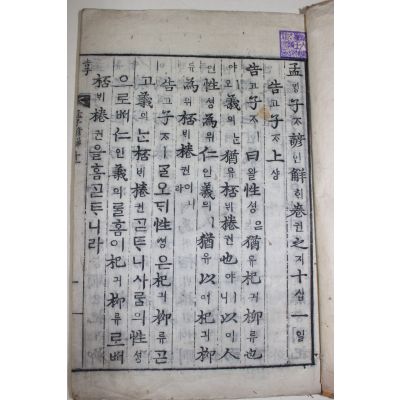 孟ᄆᆡᆼ子ᄌᆞ諺언解ᄒᆡ卷권之지十십一일
告고子ᄌᆞ上샹
告고子ᄌᆞㅣ曰왈性셩은猶유杞긔柳류也
야ㅣ오義의ᄂᆞᆫ猶유桮비棬권也야ㅣ니以이人
인性셩으로爲위仁인義의ㅣ猶유以이杞긔柳
류로爲위桮비棬권이니라
告고子ᄌᆞㅣᄀᆞᆯ오ᄃᆡ性셩은杞긔柳류ᄀᆞᆮ
고義의ᄂᆞᆫ桮비棬권ᄀᆞᆮᄐᆞ니사ᄅᆞᆷ의性셩
으로ᄡᅥ仁인義의ᄅᆞᆯ홈이杞긔柳류로ᄡᅥ
桮비棬권을홈ᄀᆞᆮᄐᆞ니라